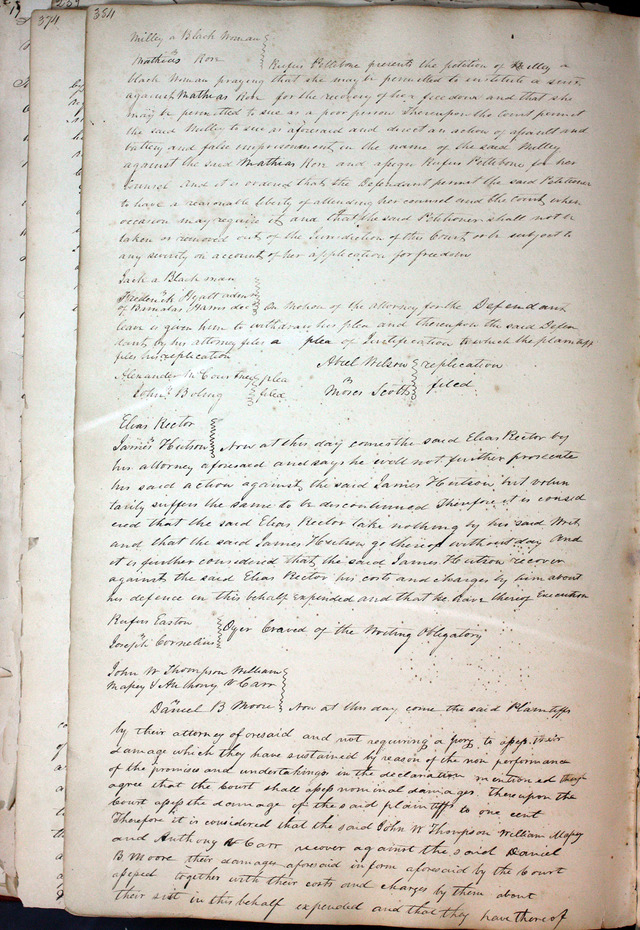 374
384
Milley a Black Woman
vs
Mathias Rose Rufus Pettibone presents the petition of Milley a
black Woman praying that she may be permitted to institute a suit
against Mathias Rose for the recovery of her freedom and that she
may be permitted to sue as a poor person Thereupon the Court permit
the said Milley to sue as aforesaid and direct an action of assault and
battery and false imprisonment in the name of the said Milley
against the said Mathias Rose and assign Rufus Pettibone for her
Counsel And it is ordered that the Defendant permit the said Petitioner
to have a reasonable liberty of attending her counsel and the Court when
occasion may require it and that the said Petitioner shall not be
taken or removed out of the Jurisdiction of this Court or be subject to
any severity on account of her application for freedom
Jack a Black man
vs
Frederick Hyatt
of Barnabas Harris decd On Motion of the attorney for the Defendant
leave is given him to withdraw his plea and thereupon the said Defen
dant by his attorney files a plea of Justification to which the plaintiff
files his replication
Alexander McCourtney plea
vs
John Boling filed
Abiel Wilson replication
vs
Moses Scott filed
Elias Rector
vs
James Hutson Now at this day comes the said Elias Rector by
his attorney aforesaid and says he will not further prosecute
his said action against the said James Hutson but volun
tarily suffers the same to be discontinued Therefore it is consid
ered that the said Elias Rector take nothing by his said Writ
and that the said James Hutson go thereof without day And
it is further considered that the said James Hutson recover
against the said Elias Rector his costs and charges by him about
his defence in this behalf expended and that he have thereof Execution
Rufus Easton
vs
Joseph Cornelius Oyer Craved of the Writing Obligatory
John W Thompson William
Massey & Anthony V Carr
vs
Daniel B Moore Now at this day come the said Plaintiffs
by their attorney aforesaid and not requiring a Jury to assess their
damage which they have sustained by reason of the non performance
of the promises and undertakings in the declaration mentioned
agree that the Court shall assess nominal damages thereupon the
Court assess the damage of the said plaintiffs to one cent
Therefore it is considered that the said John W Thompson William Massey
and Anthony V Carr recover against the said Daniel
B Moore their damages aforesaid in form aforesaid by the Court
assessed together with their costs and charges by them about
their suit in this behalf expended and that they have thereof